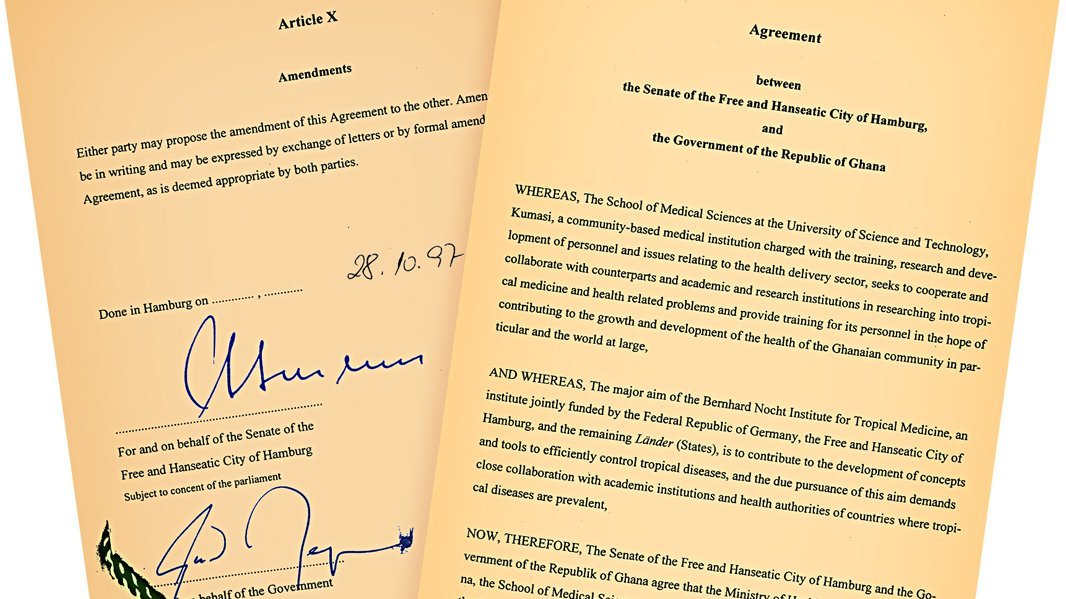 Article X
Amendments
Either party may propose the amendment of this Agreement to the other. Amen
be in writing and may be expressed by exchange of letters or by formal amend
Agreement, as is deemed appropriate by both parties.
28.10.97
Done in Hamburg on ............. , ............
For and on behalf of the Senate of the
Free and Hanseatic City of Hamburg
Subject to concent of the parliament
behalf of the Government
Agreement
between
the Senate of the Free and Hanseatic City of Hamburg,
and
the Government of the Republic of Ghana
WHEREAS, The School of Medical Sciences at the University of Science and Technology,
Kumasi, a community-based medical institution charged with the training, research and deve-
lopment of personnel and issues relating to the health delivery sector, seeks to cooperate and
collaborate with counterparts and academic and research institutions in researching into tropi-
cal medicine and health related problems and provide training for its personnel in the hope of
contributing to the growth and development of the health of the Ghanaian community in par-
ticular and the world at large,
AND WHEREAS, The major aim of the Bernhard Nocht Institute for Tropical Medicine, an
institute jointly funded by the Federal Republic of Germany, the Free and Hanseatic City of
Hamburg, and the remaining Länder (States), is to contribute to the development of concepts
and tools to efficiently control tropical diseases, and the due pursuance of this aim demands
close collaboration with academic institutions and health authorities of countries where tropi-
cal diseases are prevalent,
NOW, THEREFORE, The Senate of the Free and Hanseatic City of Hamburg and the Go-
vernment of the Republik of Ghana agree that the Ministry of
na, the School of Medical